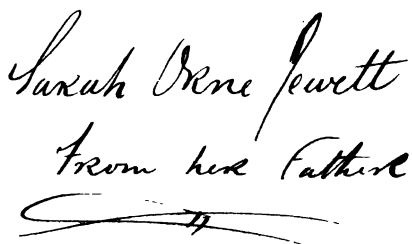 Sarah Orne Jewett
From her Father